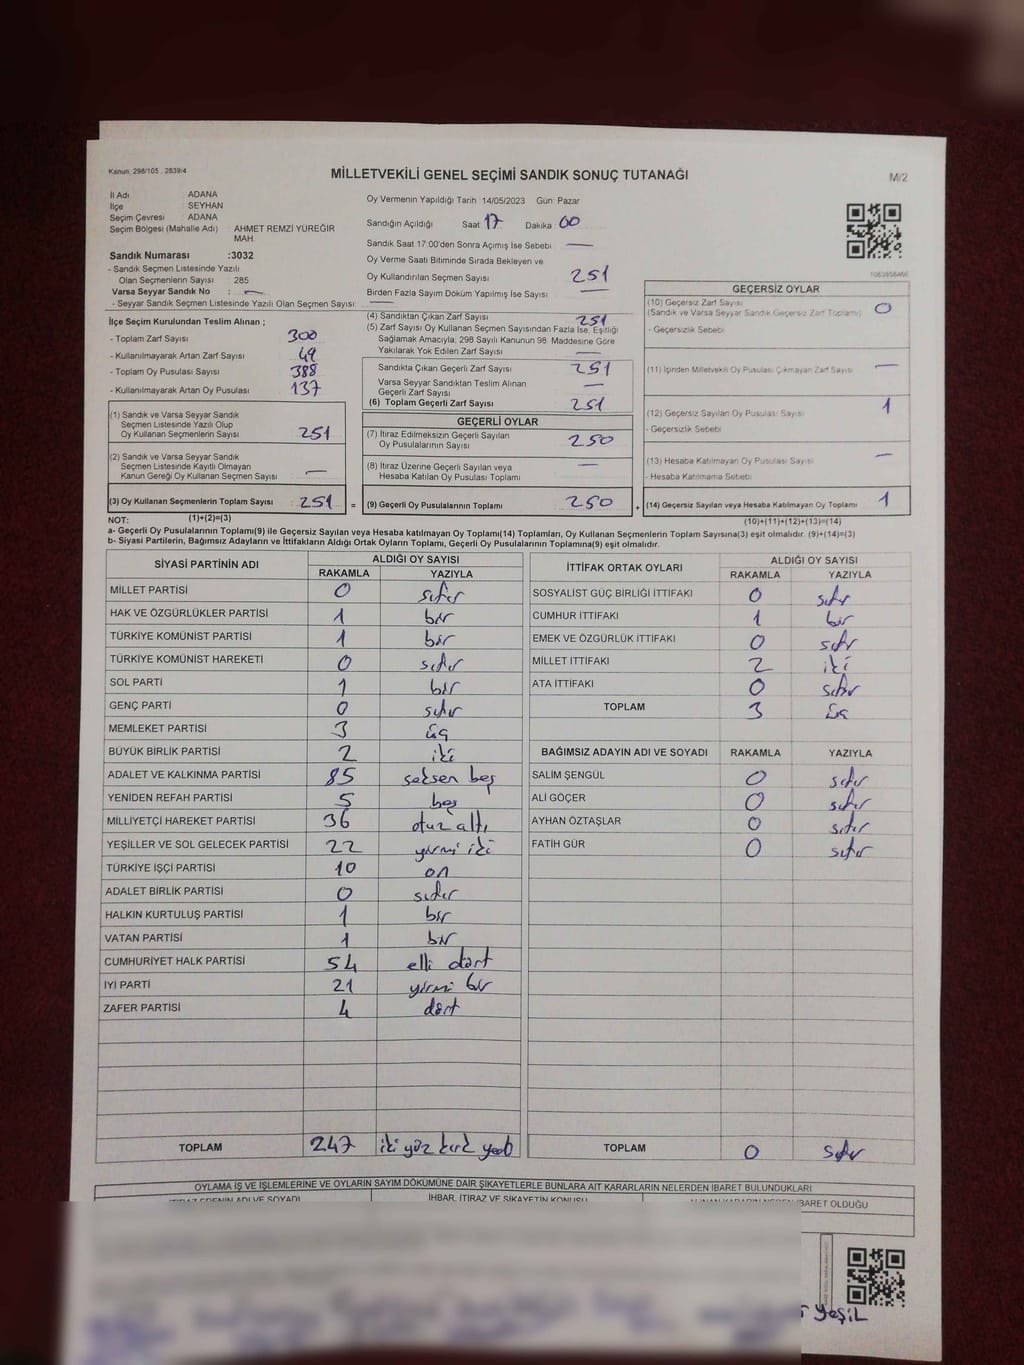 Kanun: 298/105 , 2839/4
MİLLETVEKİLİ GENEL SEÇİMİ SANDIK SONUÇ TUTANAĞI
M/2
İl Adı ADANA
İlçe SEYHAN
Seçim Çevresi ADANA
Seçim Bölgesi (Mahalle Adı) : AHMET REMZİ YÜREĞİR MAH.
Sandık Numarası :3032
- Sandık Seçmen Listesinde Yazılı
Olan Seçmenlerin Sayısı 285
Varsa Seyyar Sandık No : —
- Seyyar Sandık Seçmen Listesinde Yazılı Olan Seçmen Sayısı: —
Oy Vermenin Yapıldığı Tarih 14/05/2023 Gün: Pazar
Sandığın Açıldığı Saat 17 Dakika 00
Sandık Saat 17:00'den Sonra Açımış İse Sebebi —
Oy Verme Saati Bitiminde Sırada Bekleyen ve
Oy Kullandırılan Seçmen Sayısı 251
Birden Fazla Sayım Döküm Yapılmış İse Sayısı —
İlçe Seçim Kurulundan Teslim Alınan ;
- Toplam Zarf Sayısı 300
- Kullanılmayarak Artan Zarf Sayısı 49
- Toplam Oy Pusulası Sayısı 388
- Kullanılmayarak Artan Oy Pusulası 137
(1) Sandık ve Varsa Seyyar Sandık
Seçmen Listesinde Yazılı Olup
Oy Kullanan Seçmenlerin Sayısı 251
(2) Sandık ve Varsa Seyyar Sandık
Seçmen Listesinde Kayıtlı Olmayan
Kanun Gereği Oy Kullanan Seçmen Sayısı —
(3) Oy Kullanan Seçmenlerin Toplam Sayısı : 251 =
(1)+(2)=(3)
(4) Sandıktan Çıkan Zarf Sayısı 251
(5) Zarf Sayısı Oy Kullanan Seçmen Sayısından Fazla İse, Eşitliği
Sağlamak Amacıyla; 298 Sayılı Kanunun 98. Maddesine Göre
Yakılarak Yok Edilen Zarf Sayısı —
Sandıkta Çıkan Geçerli Zarf Sayısı 251
Varsa Seyyar Sandıktan Teslim Alınan
Geçerli Zarf Sayısı —
(6) Toplam Geçerli Zarf Sayısı 251
GEÇERLİ OYLAR
(7) İtiraz Edilmeksizin Geçerli Sayılan
Oy Pusulalarının Sayısı 250
(8) İtiraz Üzerine Geçerli Sayılan veya
Hesaba Katılan Oy Pusulası Toplamı —
(9) Geçerli Oy Pusulalarının Toplamı 250 +
GEÇERSİZ OYLAR
(10) Geçersiz Zarf Sayısı
(Sandık ve Varsa Seyyar Sandık Geçersiz Zarf Toplamı) 0
- Geçersizlik Sebebi
(11) İçinden Milletvekili Oy Pusulası Çıkmayan Zarf Sayısı —
(12) Geçersiz Sayılan Oy Pusulası Sayısı 1
- Geçersizlik Sebebi
(13) Hesaba Katılmayan Oy Pusulası Sayısı —
- Hesaba Katılmama Sebebi
(14) Geçersiz Sayılan veya Hesaba Katılmayan Oy Toplamı 1
(10)+(11)+(12)+(13)=(14)
NOT:
a- Geçerli Oy Pusulalarının Toplamı(9) ile Geçersiz Sayılan veya Hesaba katılmayan Oy Toplamı(14) Toplamları, Oy Kullanan Seçmenlerin Toplam Sayısına(3) eşit olmalıdır. (9)+(14)=(3)
b- Siyasi Partilerin, Bağımsız Adayların ve İttifakların Aldığı Ortak Oyların Toplamı, Geçerli Oy Pusulalarının Toplamına(9) eşit olmalıdır.
SİYASİ PARTİNİN ADI ALDIĞI OY SAYISI
RAKAMLA YAZIYLA
MİLLET PARTİSİ 0 sıfır
HAK VE ÖZGÜRLÜKLER PARTİSİ 1 bir
TÜRKİYE KOMÜNİST PARTİSİ 1 bir
TÜRKİYE KOMÜNİST HAREKETİ 0 sıfır
SOL PARTİ 1 bir
GENÇ PARTİ 0 sıfır
MEMLEKET PARTİSİ 3 üç
BÜYÜK BİRLİK PARTİSİ 2 iki
ADALET VE KALKINMA PARTİSİ 85 seksen beş
YENİDEN REFAH PARTİSİ 5 beş
MİLLİYETÇİ HAREKET PARTİSİ 36 otuz altı
YEŞİLLER VE SOL GELECEK PARTİSİ 22 yirmi iki
TÜRKİYE İŞÇİ PARTİSİ 10 on
ADALET BİRLİK PARTİSİ 0 sıfır
HALKIN KURTULUŞ PARTİSİ 1 bir
VATAN PARTİSİ 1 bir
CUMHURİYET HALK PARTİSİ 54 elli dört
İYİ PARTİ 21 yirmi bir
ZAFER PARTİSİ 4 dört
TOPLAM 247 iki yüz kırk yedi
İTTİFAK ORTAK OYLARI ALDIĞI OY SAYISI
RAKAMLA YAZIYLA
SOSYALİST GÜÇ BİRLİĞİ İTTİFAKI 0 sıfır
CUMHUR İTTİFAKI 1 bir
EMEK VE ÖZGÜRLÜK İTTİFAKI 0 sıfır
MİLLET İTTİFAKI 2 iki
ATA İTTİFAKI 0 sıfır
TOPLAM 3 üç
BAĞIMSIZ ADAYIN ADI VE SOYADI RAKAMLA YAZIYLA
SALİM ŞENGÜL 0 sıfır
ALİ GÖÇER 0 sıfır
AYHAN ÖZTAŞLAR 0 sıfır
FATİH GÜR 0 sıfır
TOPLAM 0 sıfır
OYLAMA İŞ VE İŞLEMLERİNE VE OYLARIN SAYIM DÖKÜMÜNE DAİR ŞİKAYETLERLE BUNLARA AİT KARARLARIN NELERDEN İBARET BULUNDUKLARI
İTİRAZ EDENİN ADI VE SOYADI İHBAR, İTİRAZ VE ŞİKAYETİN KONUSU ALINAN KARARIN NEDEN İBARET OLDUĞU
YEŞİL